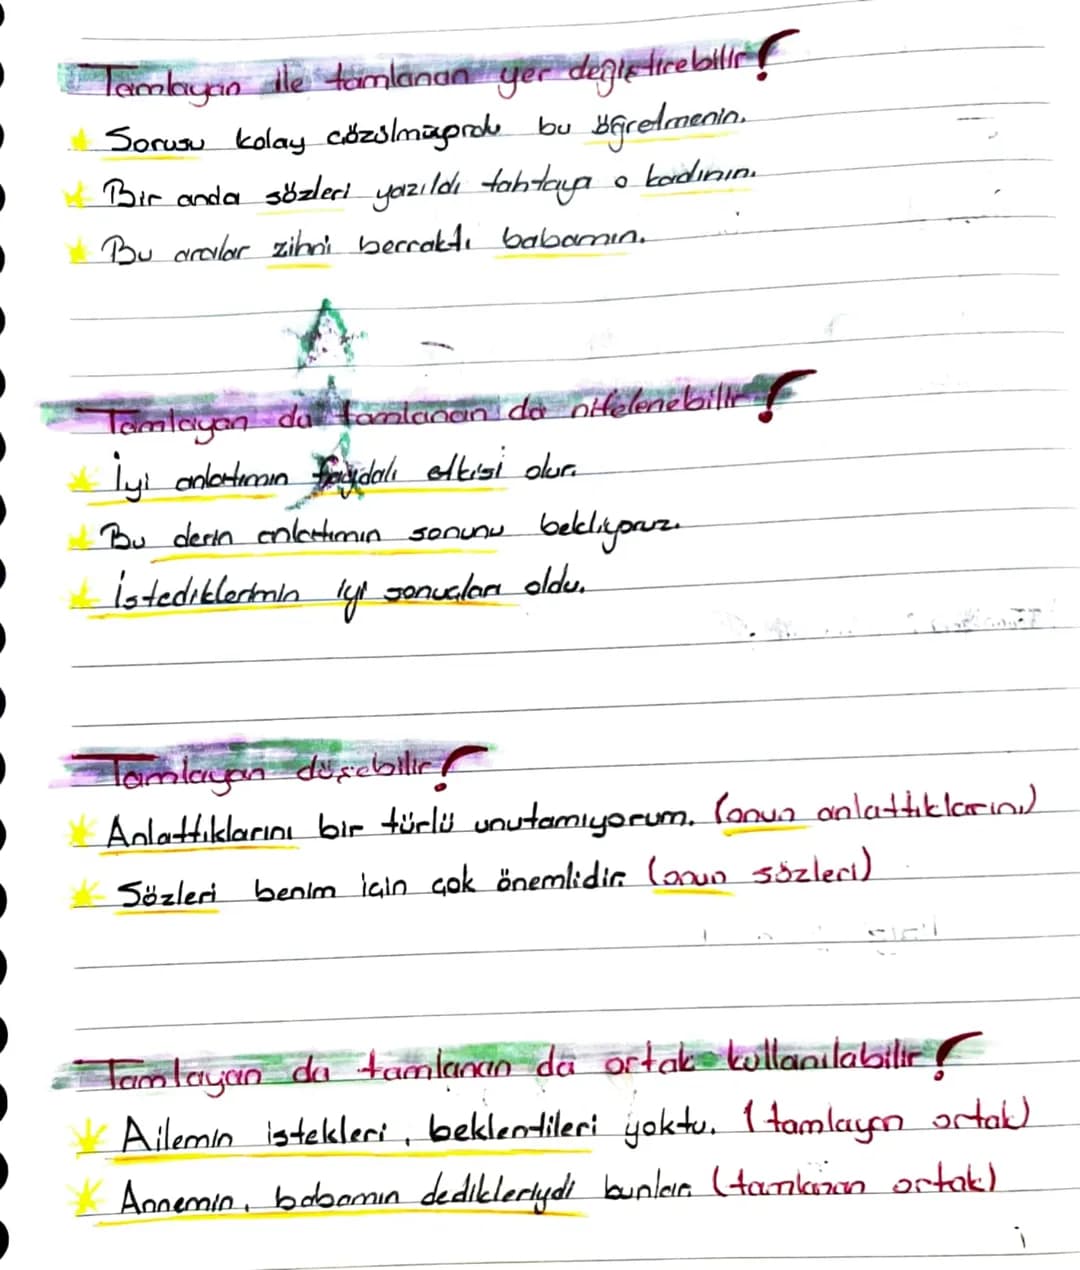 Tamlayan ile tamlanan yer değiştirebilir!
Sorusu kolay çözülmüyordu bu öğretmenin.
Bir anda sözleri yazıldı tahtaya o kadının.
Bu aralar zihni berraktı babamın.
Tamlayan da tamlanan da nitelenebilir!
İyi anlatımın faydalı etkisi olur.
Bu derin anlatımın sonunu bekliyoruz.
İstediklerimin iyi sonuçları oldu.
Tamlayan düşebilir!
Anlattıklarını bir türlü unutamıyorum. (onun anlattıklarını)
Sözleri benim için çok önemlidir. (onun sözleri)
Tamlayan da tamlanan da ortak kullanılabilir!
Ailemin istekleri, beklentileri yoktu. (tamlayan ortak)
Annemin, babamın dedikleriydi bunlar. (tamlanan ortak)